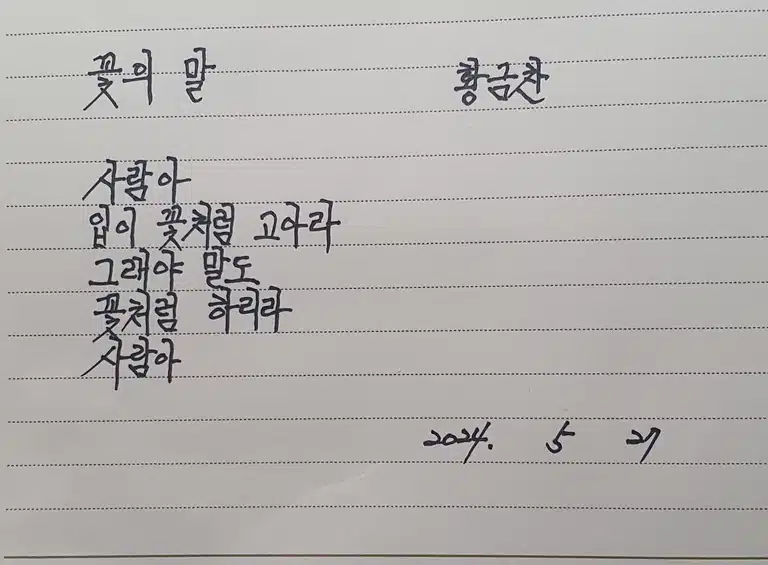 꽃의 말 황금찬
사람아
입이 꽃처럼 고아라
그래야 말도
꽃처럼 하리라
사람아
2024. 5 27